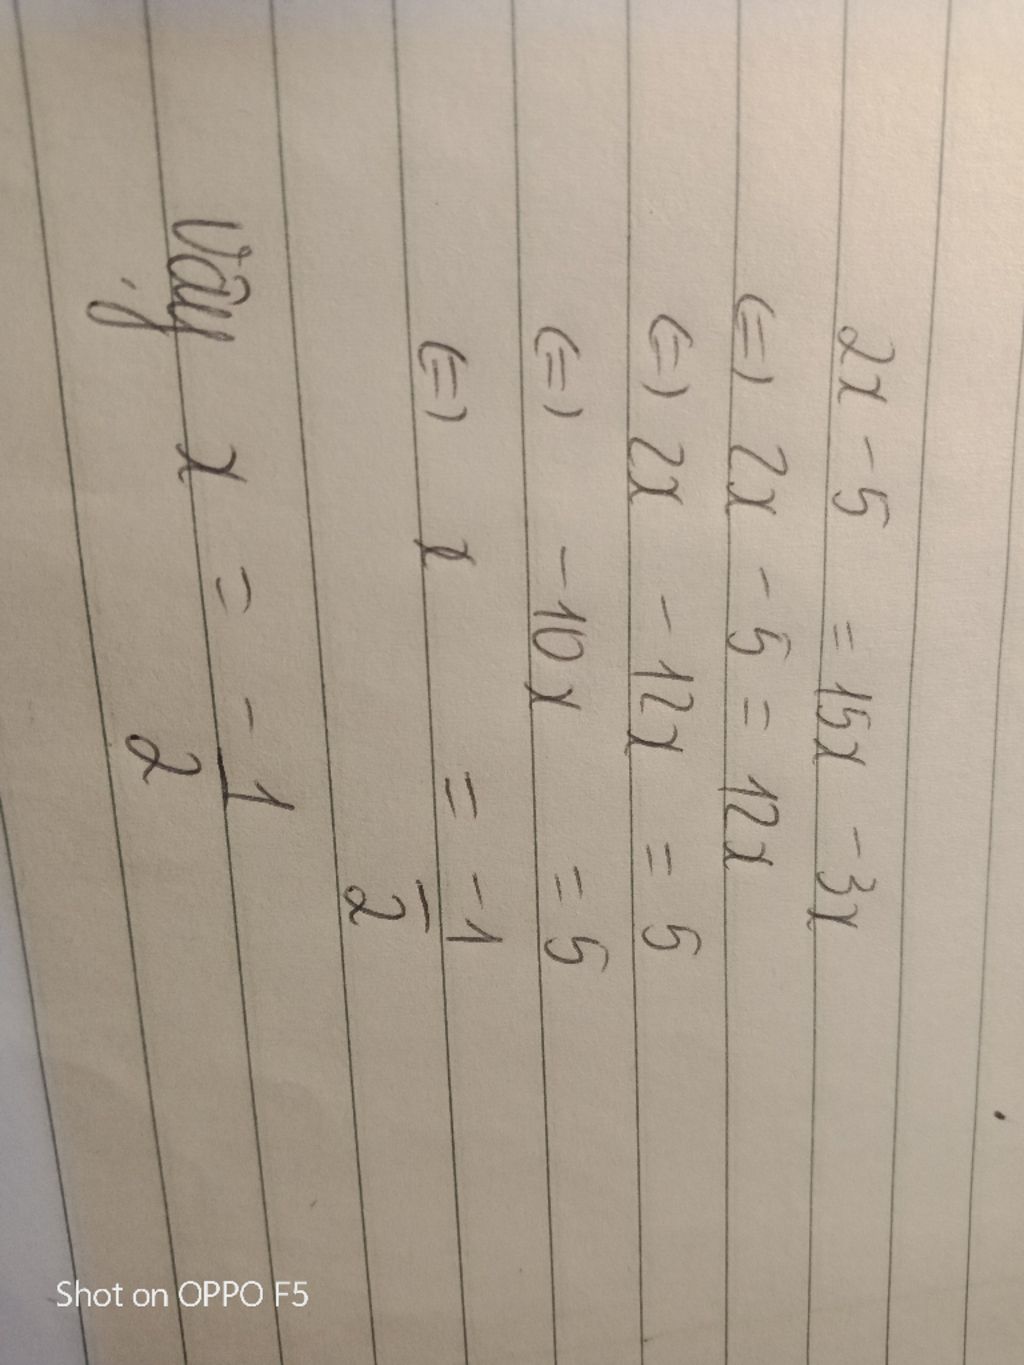 2x - 5 = 15x - 3x
(=) 2x - 5 = 12x
(=) 2x - 12x = 5
(=) -10x = 5
(=) x = -1/2
Vậy x = -1/2
Shot on OPPO F5